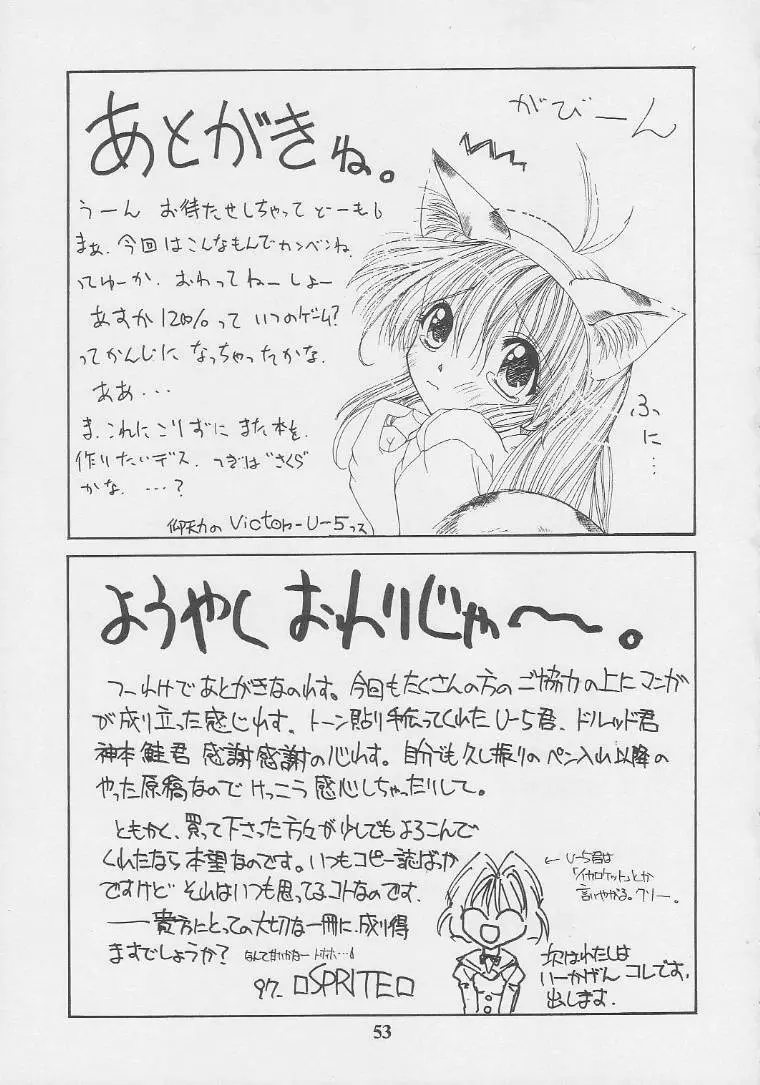 あとがきね。
がびーん
うーん お待たせしちゃって どーも
まぁ、今回はこんなもんでカンベンね
ってゆーか、おわってねーしょー
あすか120%って いつのゲーム?
ってかんじに なっちゃったかな、
ああ・・・
ま、これにこりずに また本を、
作りたいデス、 つぎは"さくら"
かな、 ・・・?
ふに…
Victor-U-5っス
ようやく おわりじゃ〜〜。
つーわけであとがきなのれす。今回もたくさんの方のご協力の上にマンガ
が成り立った感じれす、トーン貼り手伝ってくれたU-5君、ドルッド君
神本 鮭君 感謝感謝の心れす。自分でも久し振りのペン入れ以降の
やった原稿なので けっこう 感心しちゃったりして。
ともかく、買って下さった方々が少しでもよろこんで
くれたなら本望なのです。いつもコピー誌ばっか
ですけど それはいつも思ってるコトなのです、
——貴方にとっての大切な一冊に、成り得
ますでしょうか?
97- □SPRITE□
← U-5君は
「イカロケット」とか
言いやがる。クリー。
次はわたしは
いーかげん コレです、
出します.
53